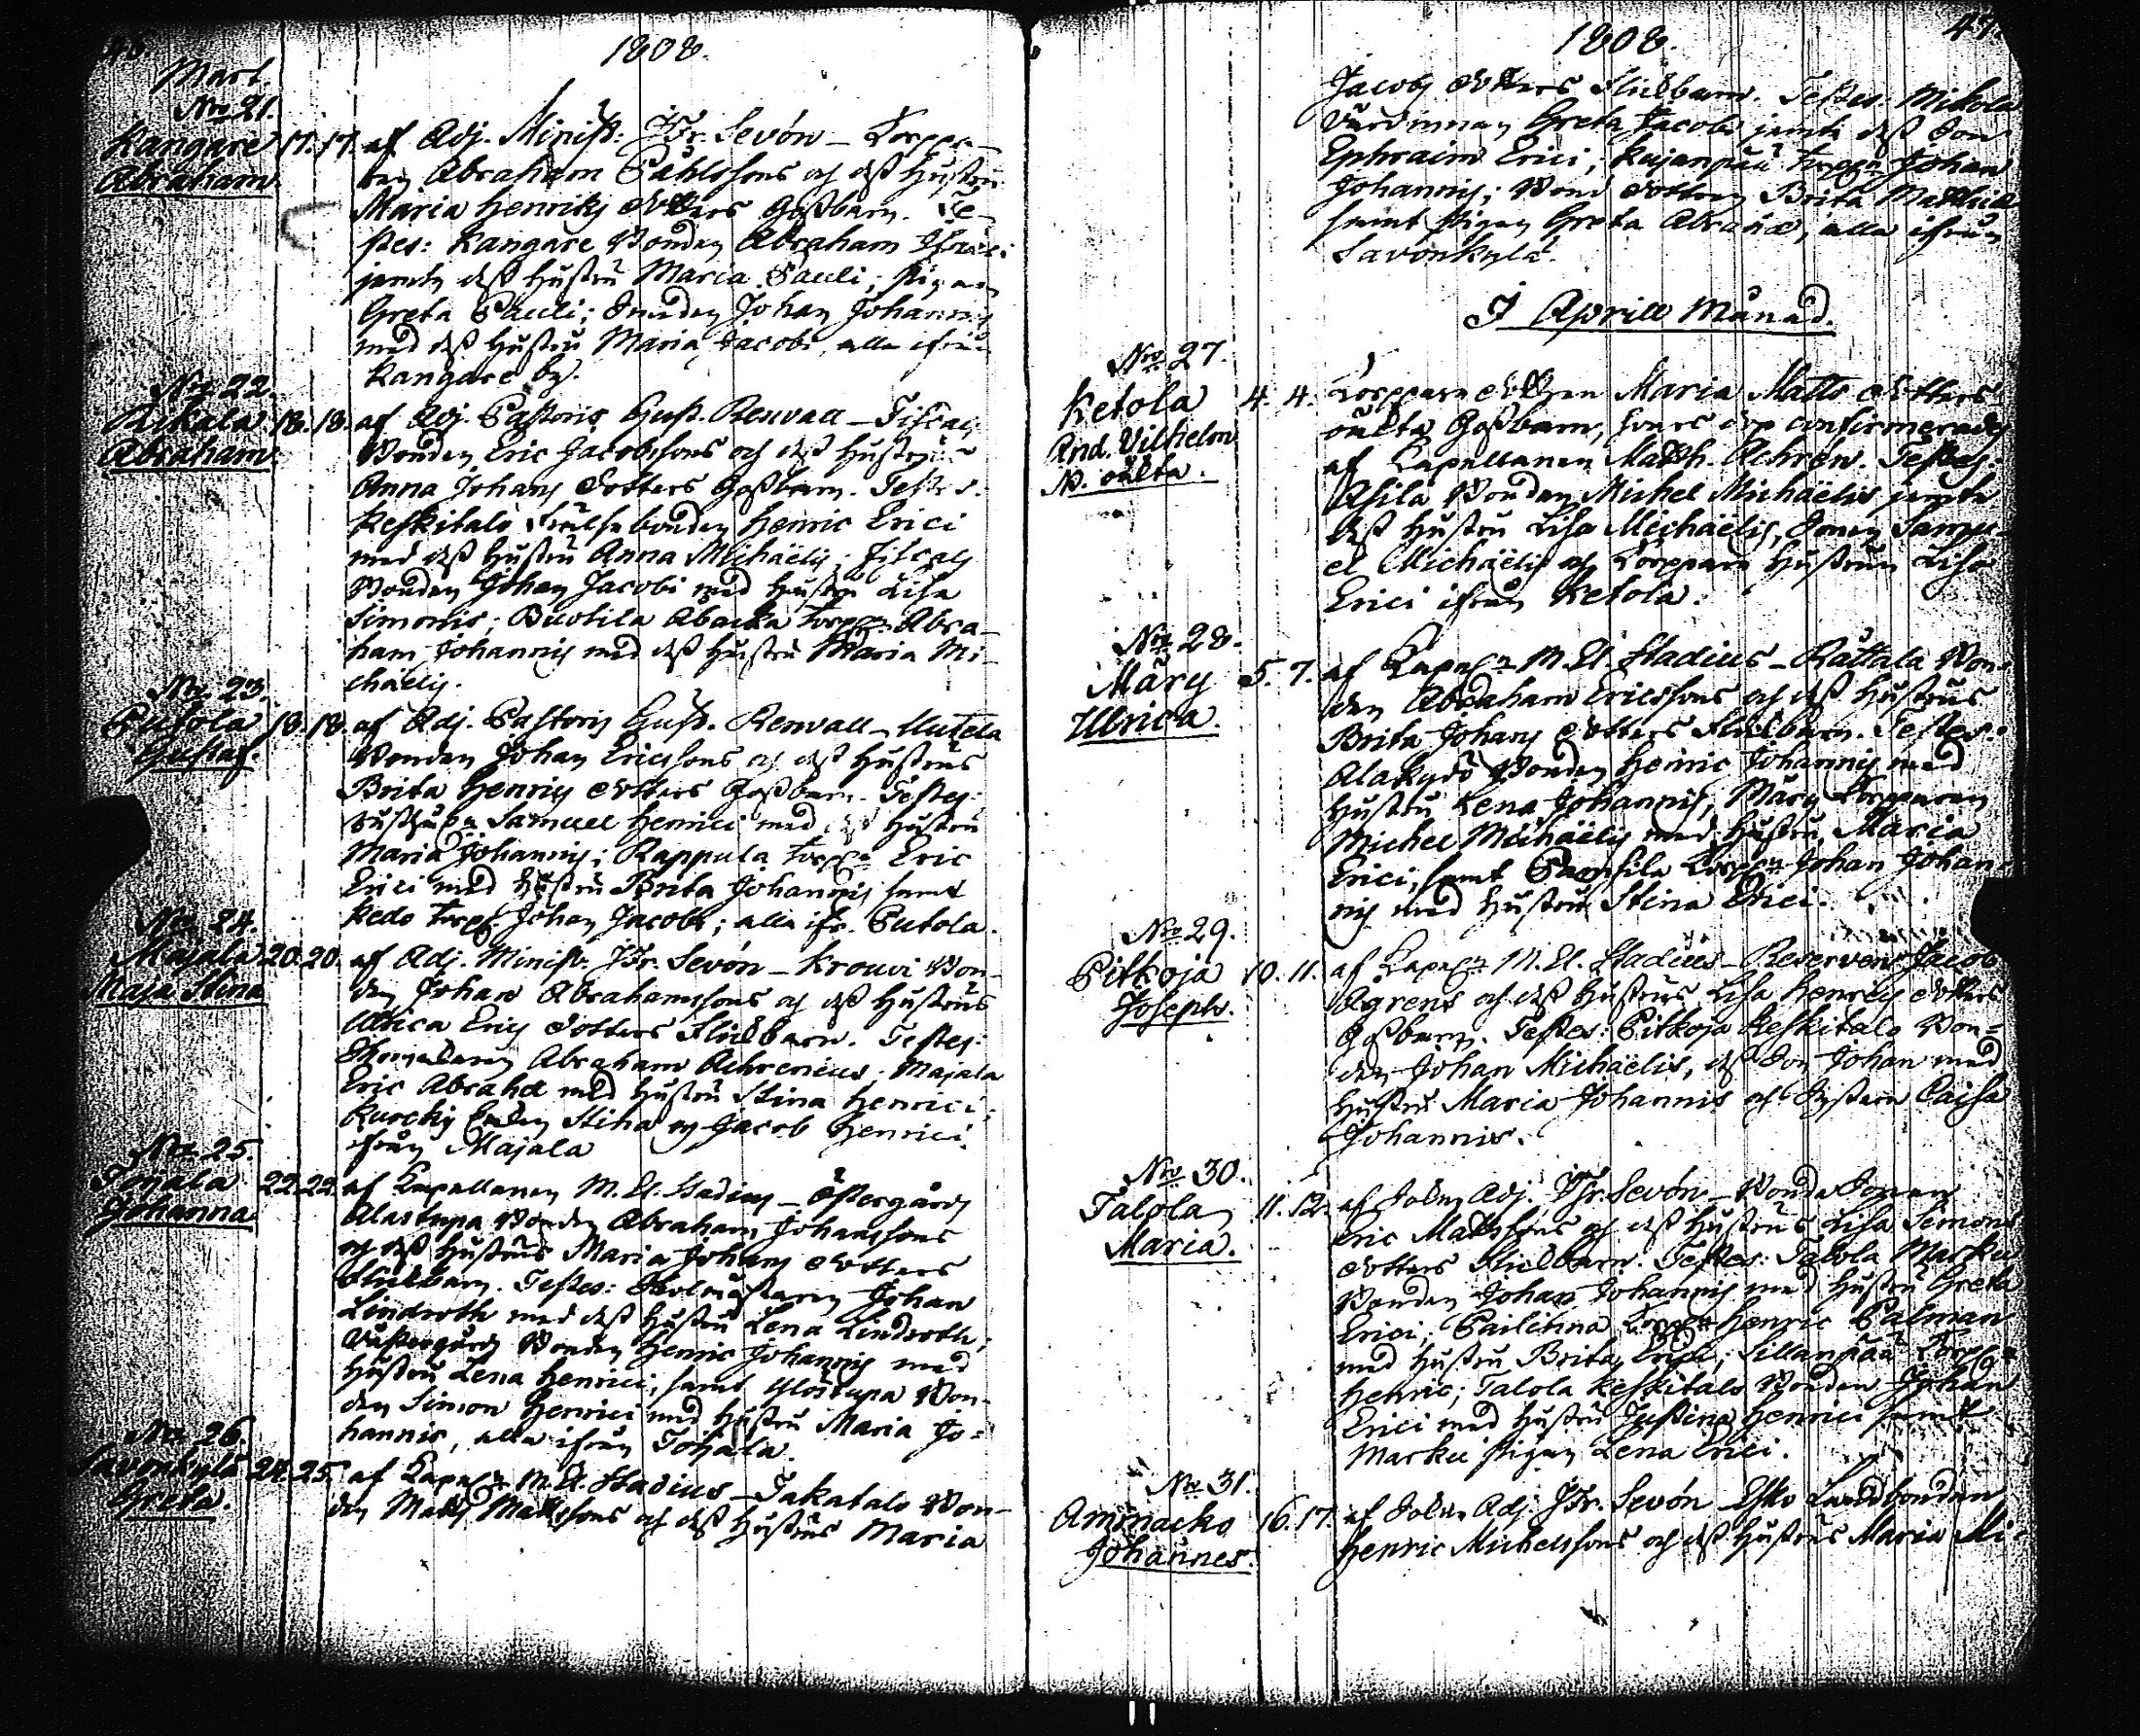 46.
1808.
Mart.
Nro 21.
Kangare 17. 17. af Adj. Minist. Hr. Sevón – Torppa-
Abraham
ren Abraham Påhlssons och dess hustrus
Maria Henriks dotters Gossbarn. Te-
stes: Kangare Bonden Abraham
jemte dess hustru Maria Pauli; pigan
Greta Pauli; Johan Johannis
med dess hustru Maria Jacobi, alla ifrån
Kangare by.
Nro 22.
Rekala 18. 18. af Adj. Pastoris Gust. Renvall –
Abraham
Bonden Eric Jacobssons och dess hustrus
Anna Johans dotters Gossbarn. Testes:
Keskitalo bonden Henric Erici
med dess hustru Anna Michaëlis;
Bonden Johan Jacobi med hustru Lisa
Simonis; Torpp. Abra-
ham Johannis med dess hustru Maria Mi-
chaëlis.
Nro 23.
Putola 18. 18. af Adj. Pastoris Gust. Renvall – Uutela
Gustaf.
Bonden Johan Ericssons och dess hustrus
Brita Henrics dotters Gossbarn. Testes:
Samuel Henrici med dess hustru
Maria Johannis; Rappula Torpp. Eric
Erici med hustru Brita Johannis samt
Kedo Torpp. Johan Jacobi; alla ifr. Putola.
Nro 24.
Majala 20. 20. af Adj. Minist. Hr. Sevón – Krouvi Bon-
Maja Stina
den Johan Abrahamssons och dess hustrus
Ulrica Erics dotters Flickbarn. Testes:
Abraham Achrenius; Majala
Eric Abrahæ med hustru Stina Henrici;
Stina och Jacob Henrici
ifrån Majala
Nro 25.
Tojala 22. 22. af Kapellanen M. El. Stadius – Östergårds
Johanna
Alastupa Bonden Abraham Johanssons
och dess hustrus Maria Johans dotters
Flickbarn. Testes: Johan
Lindroth med dess hustru Lena Lindroth;
Västergårds Bonden Henric Johannis med
hustru Lena Henrici, samt Ylöstupa Bon-
den Simon Henrici med hustru Maria Jo-
hannis, alla ifrån Tojala.
Nro 26.
Savonkylä 24. 25. af Kapel. M. El. Stadius – Takatalo Bon-
Greta.
den Matts Mattssons och dess hustrus Maria
1808.
47.
Jacobs dotters Flickbarn. Testes: Mikola
Värdinnan Greta Jacobi jemte dess Son
Ephraim Erici; Kujanpää Torpp. Johan
Johannis; Bond dottren Brita Matthiæ
samt pigan Greta Abrahæ, alla ifrån
Savonkylä.
I Aprill Månad.
Nro 27.
Ketola 4. 4. Torppare dottren Maria Matts dotters
And. Vilhelm
N. oäkta.
oäkta Gossbarn, hvars dop confirmerades
af Kapellanen Matth. Achrén. Testes:
Asila Bonden Michel Michaëlis jemte
dess hustru Lisa Michaëlis, Samu-
el Michaëlis och Torppare hustrun Lisa
Erici ifrån Ketola.
Nro 28.
Märy 5. 7. af Kapel. M. El. Stadius – Rättälä Bon-
Ulrica.
den Abraham Ericssons och dess hustrus
Brita Johans dotters Flickbarn. Testes:
Alakyrö Bonden Henric Johannis med
hustru Lena Johannis, Märy Torpparen
Michel Michaëlis med hustru Maria
Erici, samt Torpp. Johan Johan-
nis med hustru Stina Erici.
Nro 29.
Pitkoja 10. 11. af Kapel. M. El. Stadius – Reservens Jacob
Joseph.
Ågrens och dess hustrus Lisa Henrics dotters
Gossbarn. Testes: Pitkoja Keskitalo Bon-
den Johan Michaëlis, dess Son Johan med
hustru Maria Johannis och Caisa
Johannis.
Nro 30.
Talola 11. 12. af Adj. Hr. Sevón – Bonde Sonen
Maria.
Eric Mattssons och dess hustrus Lisa Simons
dotters Flickbarn. Testes: Talola Marku
Bonden Johan Johannis med hustru Greta
Erici; Torpp. Henric Palman
med hustru Brita; Sillanpää Torpp.
Henric; Talola Keskitalo Bonden Johan
Erici med hustru Justina Henrici samt
Marku pigan Lena Erici.
Nro 31.
Ammacko 16. 17. af Adj. Hr. Sevón – Landbonden
Johannes.
Henric Michelssons och dess hustrus Maria Mi-